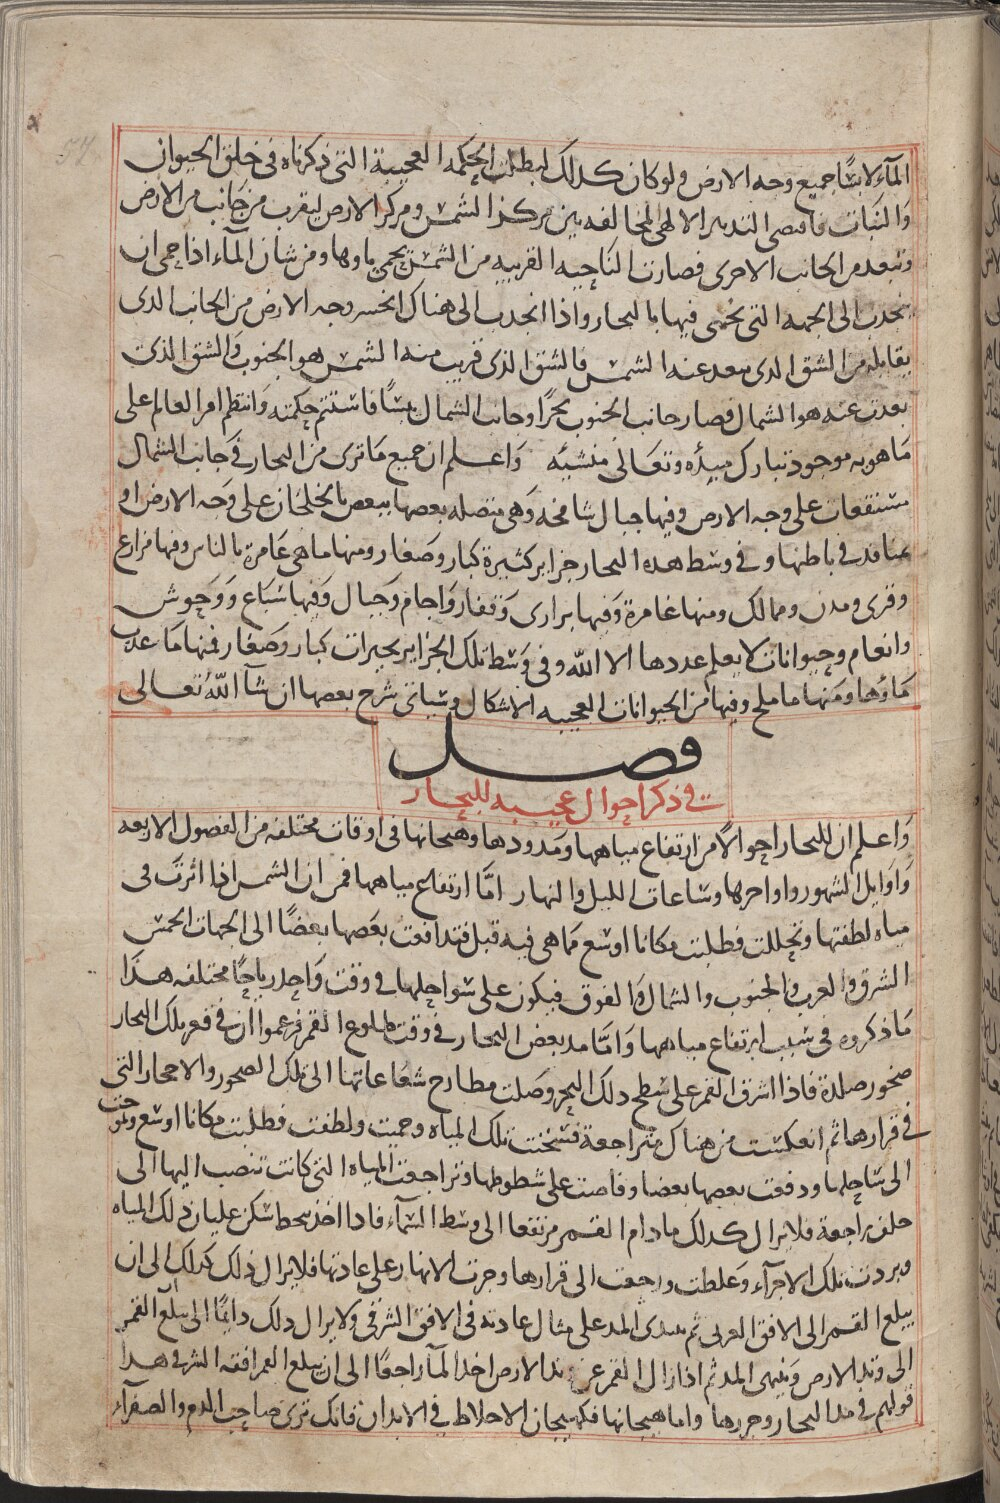 المآء لابسًا جميع وجه الارض ولو كان كذلك لبطلت الحكمه العجيبة التى ذكرناه فى خلق الحيوان
والنبات فاقتضى التدبير الالهى المخالفه بين مركز الشمس ومركز الارض ليقرب من جانب من الارض
وتبعد من الجانب الاخرى فصارت الناحيه القريبه من الشمس يحمى ماوها ومن شان المآء اذا حمى ان
ينجذب الى الجهه التى يحمى فيها بالبحار واذا انجذب الى هناك انحسر وجه الارض من الجانب الذى
يقابله من الشق الذى يبعد عنه الشمس فالشق الذى قريب منه الشمس هو الجنوب والشق الذى
بعدت عنه هو الشمال فصار جانب الجنوب بحرًا وجانب الشمال يبسًا فاستتم حكمته وانتظم امر العالم على
ما هو به موجود تبارك مبيدٔه وتعالى منشيئه واعلم ان جميع ما ترى من البحار فى جانب الشمال
مستنقعات على وجه الارض وفيها جبال شامخه وهى متصله بعضها ببعض بالخلجان على وجه الارض او
منافذ فى باطنها وفى وسط هذه البحار جزاير كثيرة كبار وصغار ومنها ما هى عامرة بالناس وفيها مزارع
وقرى ومدن وممالك ومنها غامرة وفيها برارى وقفار واجام وجبال وفيها سباع ووحوش
وانعام وحيوانات لا يعلم عددها الا الله وفى وسط تلك الجزاير بحيرات كبار وصغار فمنها ما عذب
ماؤها ومنها ما ملح وفيها من الحيوانات العجيبه الاشكال وسياتى شرح بعضها ان شآ الله تعالى
فصل
فى ذكر احوال عجيبه للبحار
واعلم ان للبحار احوالًا من ارتفاع مياهها ومدودها وهيجانها فى اوقات مختلفه من الفصول الاربعه
واوايل الشهور واواخرها وساعات الليل والنهار امّا ارتفاع مياهها فمن ان الشمس اذا اثرت فى
مياه لطفتها وتحللت فطلبت مكانا اوسع مما هى فيه قبل فتدافعت بعضها بعضًا الى الجهات الخمس
الشرق والغرب والجنوب والشمال والفوق فيكون على سواحلها فى وقت واحد رياحًا مختلفه هذا
ما ذكروه فى سبب ارتفاع مياهها وامّا مد بعض البحار فى وقت طلوع القمر فزعموا ان فى قعر تلك البحار
صخور صلدة فاذا اشرق القمر على سطح ذلك البحر وصلت مطارح شعاعاتها الى تلك الصخور والاحجار التى
فى قرارها ثم انعكست من هناك متراجعة فسخنت تلك المياه وحميت ولطفت فطلبت مكانا اوسع وتموجت
الى ساحلها ودفعت بعضها بعضا وفاضت على شطوطها وتراجعت المياه التى كانت تنصب اليها الى
خلف راجعة فلا يزال كذلك ما دام القمر مرتفعا الى وسط السّمآء فاذا اخذ ينحط سكن غليان ذلك المياه
وبردت تلك الاجزآء وغلظت ورجعت الى قرارها وجرت الانهار على عادتها فلا يزال ذلك كذلك الى ان
يبلغ القمر الى الافق الغربى ثم يبتدى المد على مثال عادته فى الافق الشرقى ولا يزال ذلك دايمًا الى ان يبلغ القمر
الى وتد الارض وينتهى المد ثم اذا زال القمر عن وتد الارض اخذ المآء راجعًا الى ان يبلغ القمر افقه الشرقى هذا
قولهم فى مد البحار وجزرها واما هيجانها فكهيجان الاخلاط فى الابدان فانك ترى صاحب الدم والصفرآء